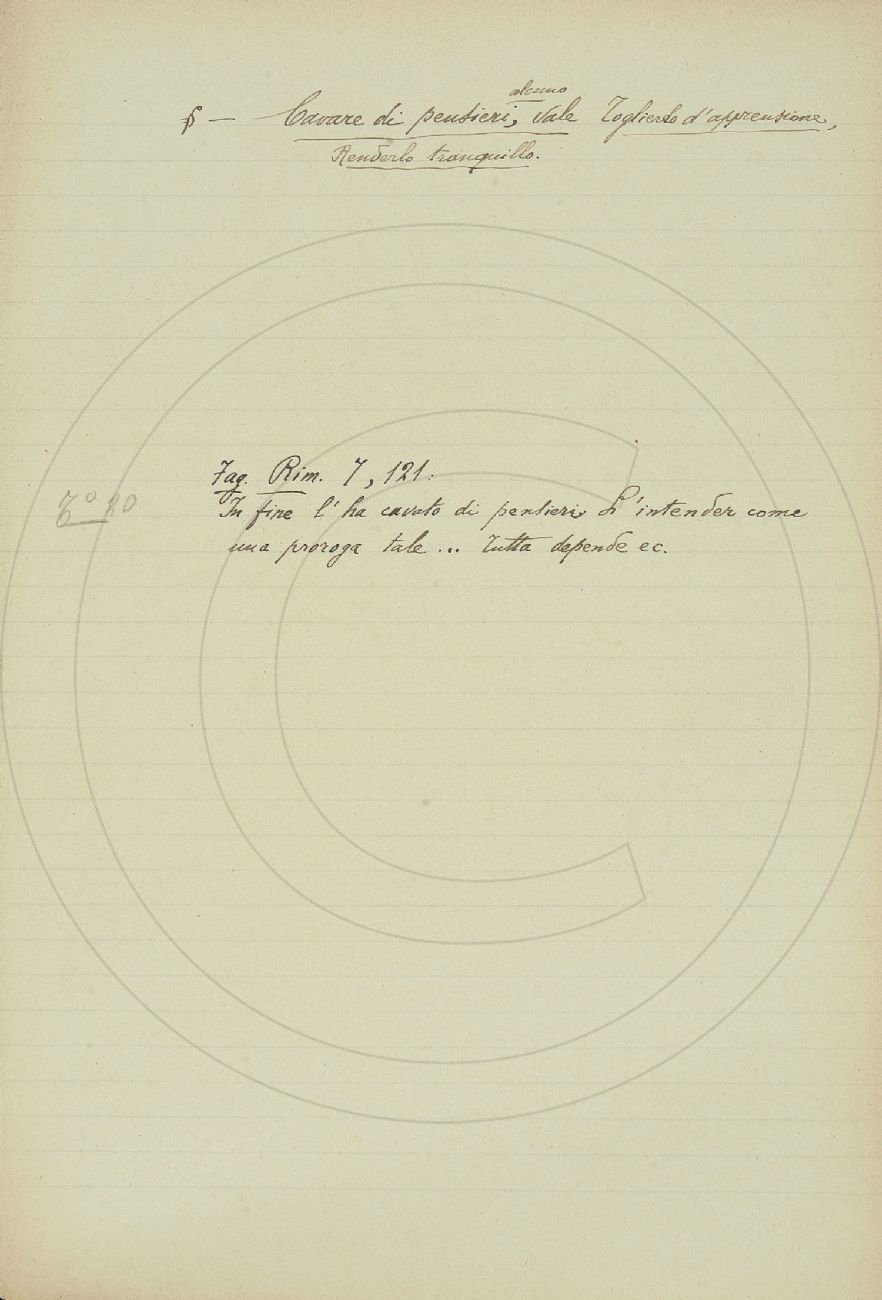 § — Cavare di pensieri alcuno, Vale Toglierlo d'apprensione,
Renderlo tranquillo.
Fag. Rim. 7, 121:
In fine l'ha cavato di pensieri L'intender come
una proroga tale ... Tutta depende ec.